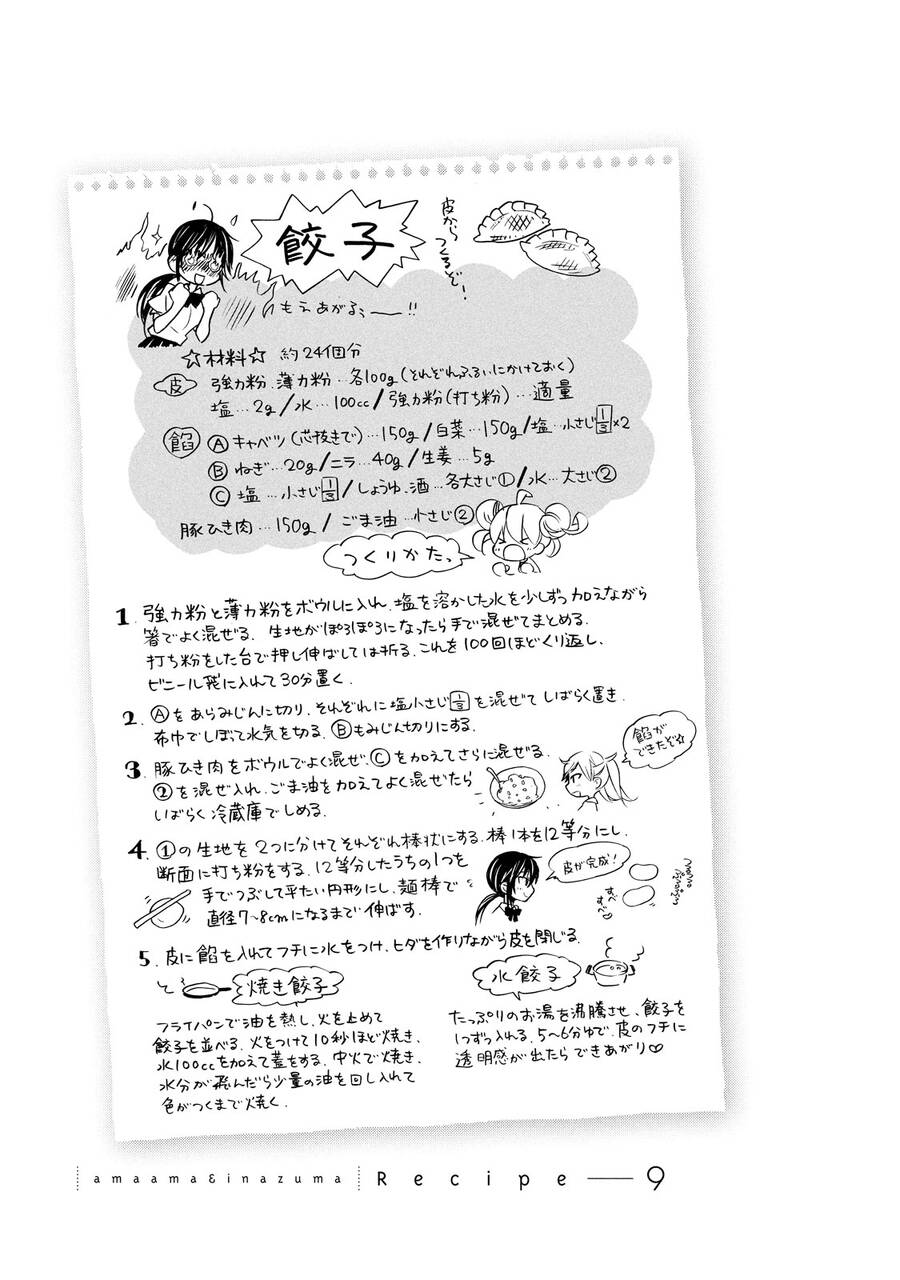 餃子
皮から
つくるぞ!
もえあがる、——!!
☆材料☆ 約24個分
皮 強力粉、薄力粉…各100g(それぞれふるいにかけておく)
塩…2g/水…100cc/強力粉(打ち粉)…適量
餡 Ⓐキャベツ(芯抜きで)…150g/白菜…150g/塩…小さじ1/3×2
Ⓑねぎ…20g/ニラ…40g/生姜…5g
Ⓒ塩…小さじ1/3/しょうゆ、酒…各大さじ①/水…大さじ②
豚ひき肉…150g/ごま油…小さじ②
つくりかたっ
1. 強力粉と薄力粉をボウルに入れ、塩を溶かした水を少しずつ加えながら
箸でよく混ぜる。生地がぽろぽろになったら手で混ぜてまとめる。
打ち粉をした台で押し伸ばしては折る。これを100回ほどくり返し、
ビニール袋に入れて30分置く。
2. Ⓐをあらみじんに切り、それぞれに塩小さじ1/3を混ぜてしばらく置き、
布巾でしぼって水気を切る。Ⓑもみじん切りにする。
餡が
できたぞ☆
3. 豚ひき肉をボウルでよく混ぜ、Ⓒを加えてさらに混ぜる。
②を混ぜ入れ、ごま油を加えてよく混ぜたら
しばらく冷蔵庫でしめる。
4. ①の生地を2つに分けてそれぞれ棒状にする。棒1本を12等分にし、
断面に打ち粉をする。12等分したうちの1つを
手でつぶして平たい円形にし、麺棒で
直径7~8cmになるまで伸ばす。
皮が完成!
すべ
すべ
つるつる
ぷるぷる
5. 皮に餡を入れてフチに水をつけ、ヒダを作りながら皮を閉じる。
焼き餃子
フライパンで油を熱し、火を止めて
餃子を並べる。火をつけて10秒ほど焼き、
水100ccを加えて蓋をする。中火で焼き、
水分が飛んだら少量の油を回し入れて
色がつくまで焼く。
水餃子
たっぷりのお湯を沸騰させ、餃子を
1つずつ入れる。5~6分ゆで、皮のフチに
透明感が出たらできあがり♡
amaama&inazuma Recipe—9